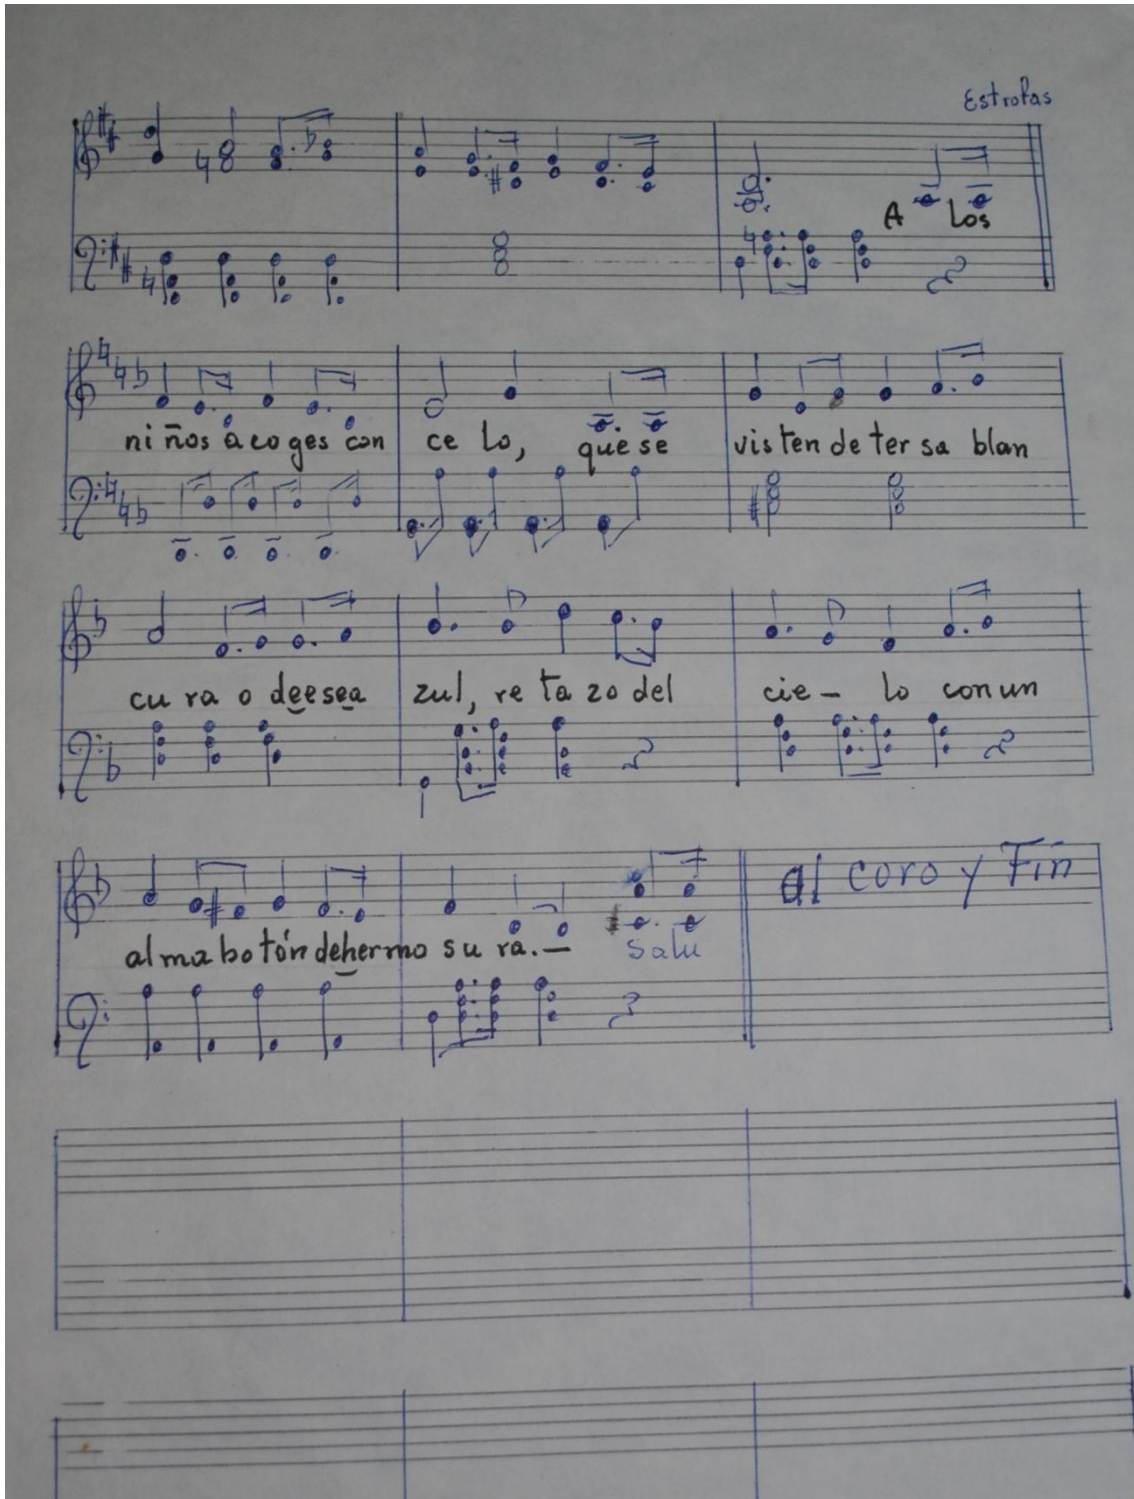 Estrofas
A los
ni ños a co ges con ce lo, que se vis ten de ter sa blan
cu ra o deesea zul, re ta zo del cie – lo con un
al ma bo tón dehermo su ra. – Salu
al coro y Fin